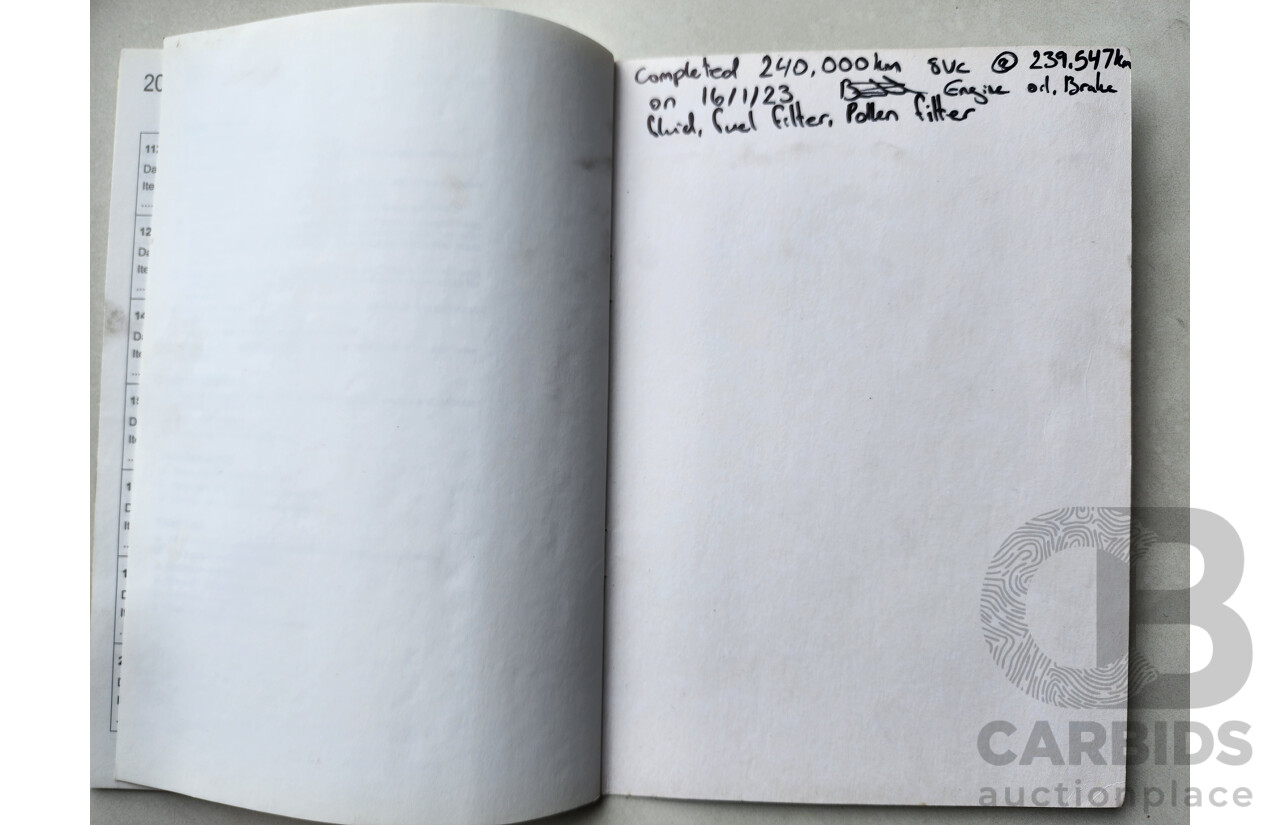 20
11
Da
Ite
....
12
Da
Ite
...
14
D
Ite
...
15
D
It
..
1
D
It
..
1
D
It
.
2
D
Completed 240,000km svc @ 239.547km
on 16/1/23 Engine oil, Brake
fluid, fuel filter, Pollen filter
CARBIDS
auctionplace